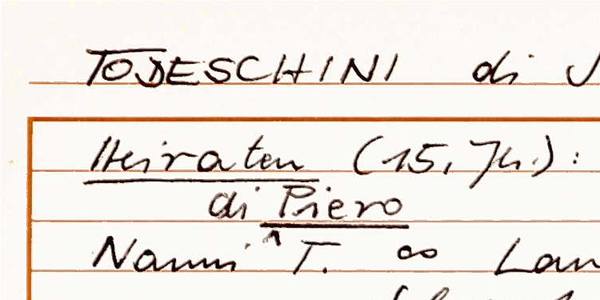 TODESCHINI di
Heiraten (15. Jh.):
di Piero
Nanni T. ∞